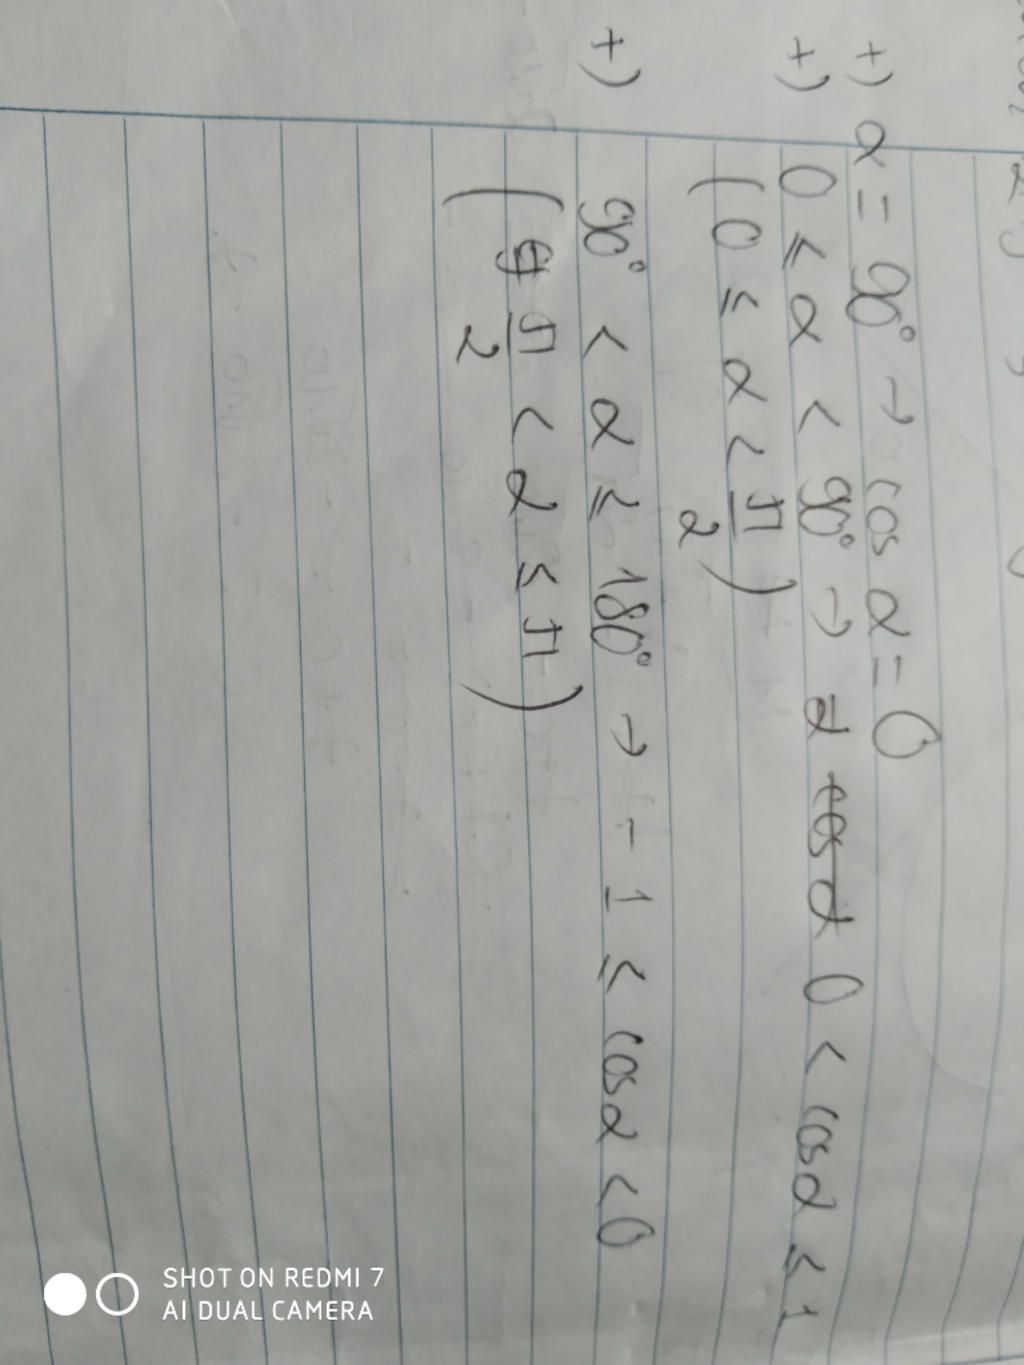 +) α = 90° → cos α = 0
+) 0 ≤ α < 90° → 0 < cosα ≤ 1
( 0 ≤ α < π/2 )
+) 90° < α ≤ 180° → - 1 ≤ cosα < 0
( π/2 < α ≤ π )
SHOT ON REDMI 7
AI DUAL CAMERA